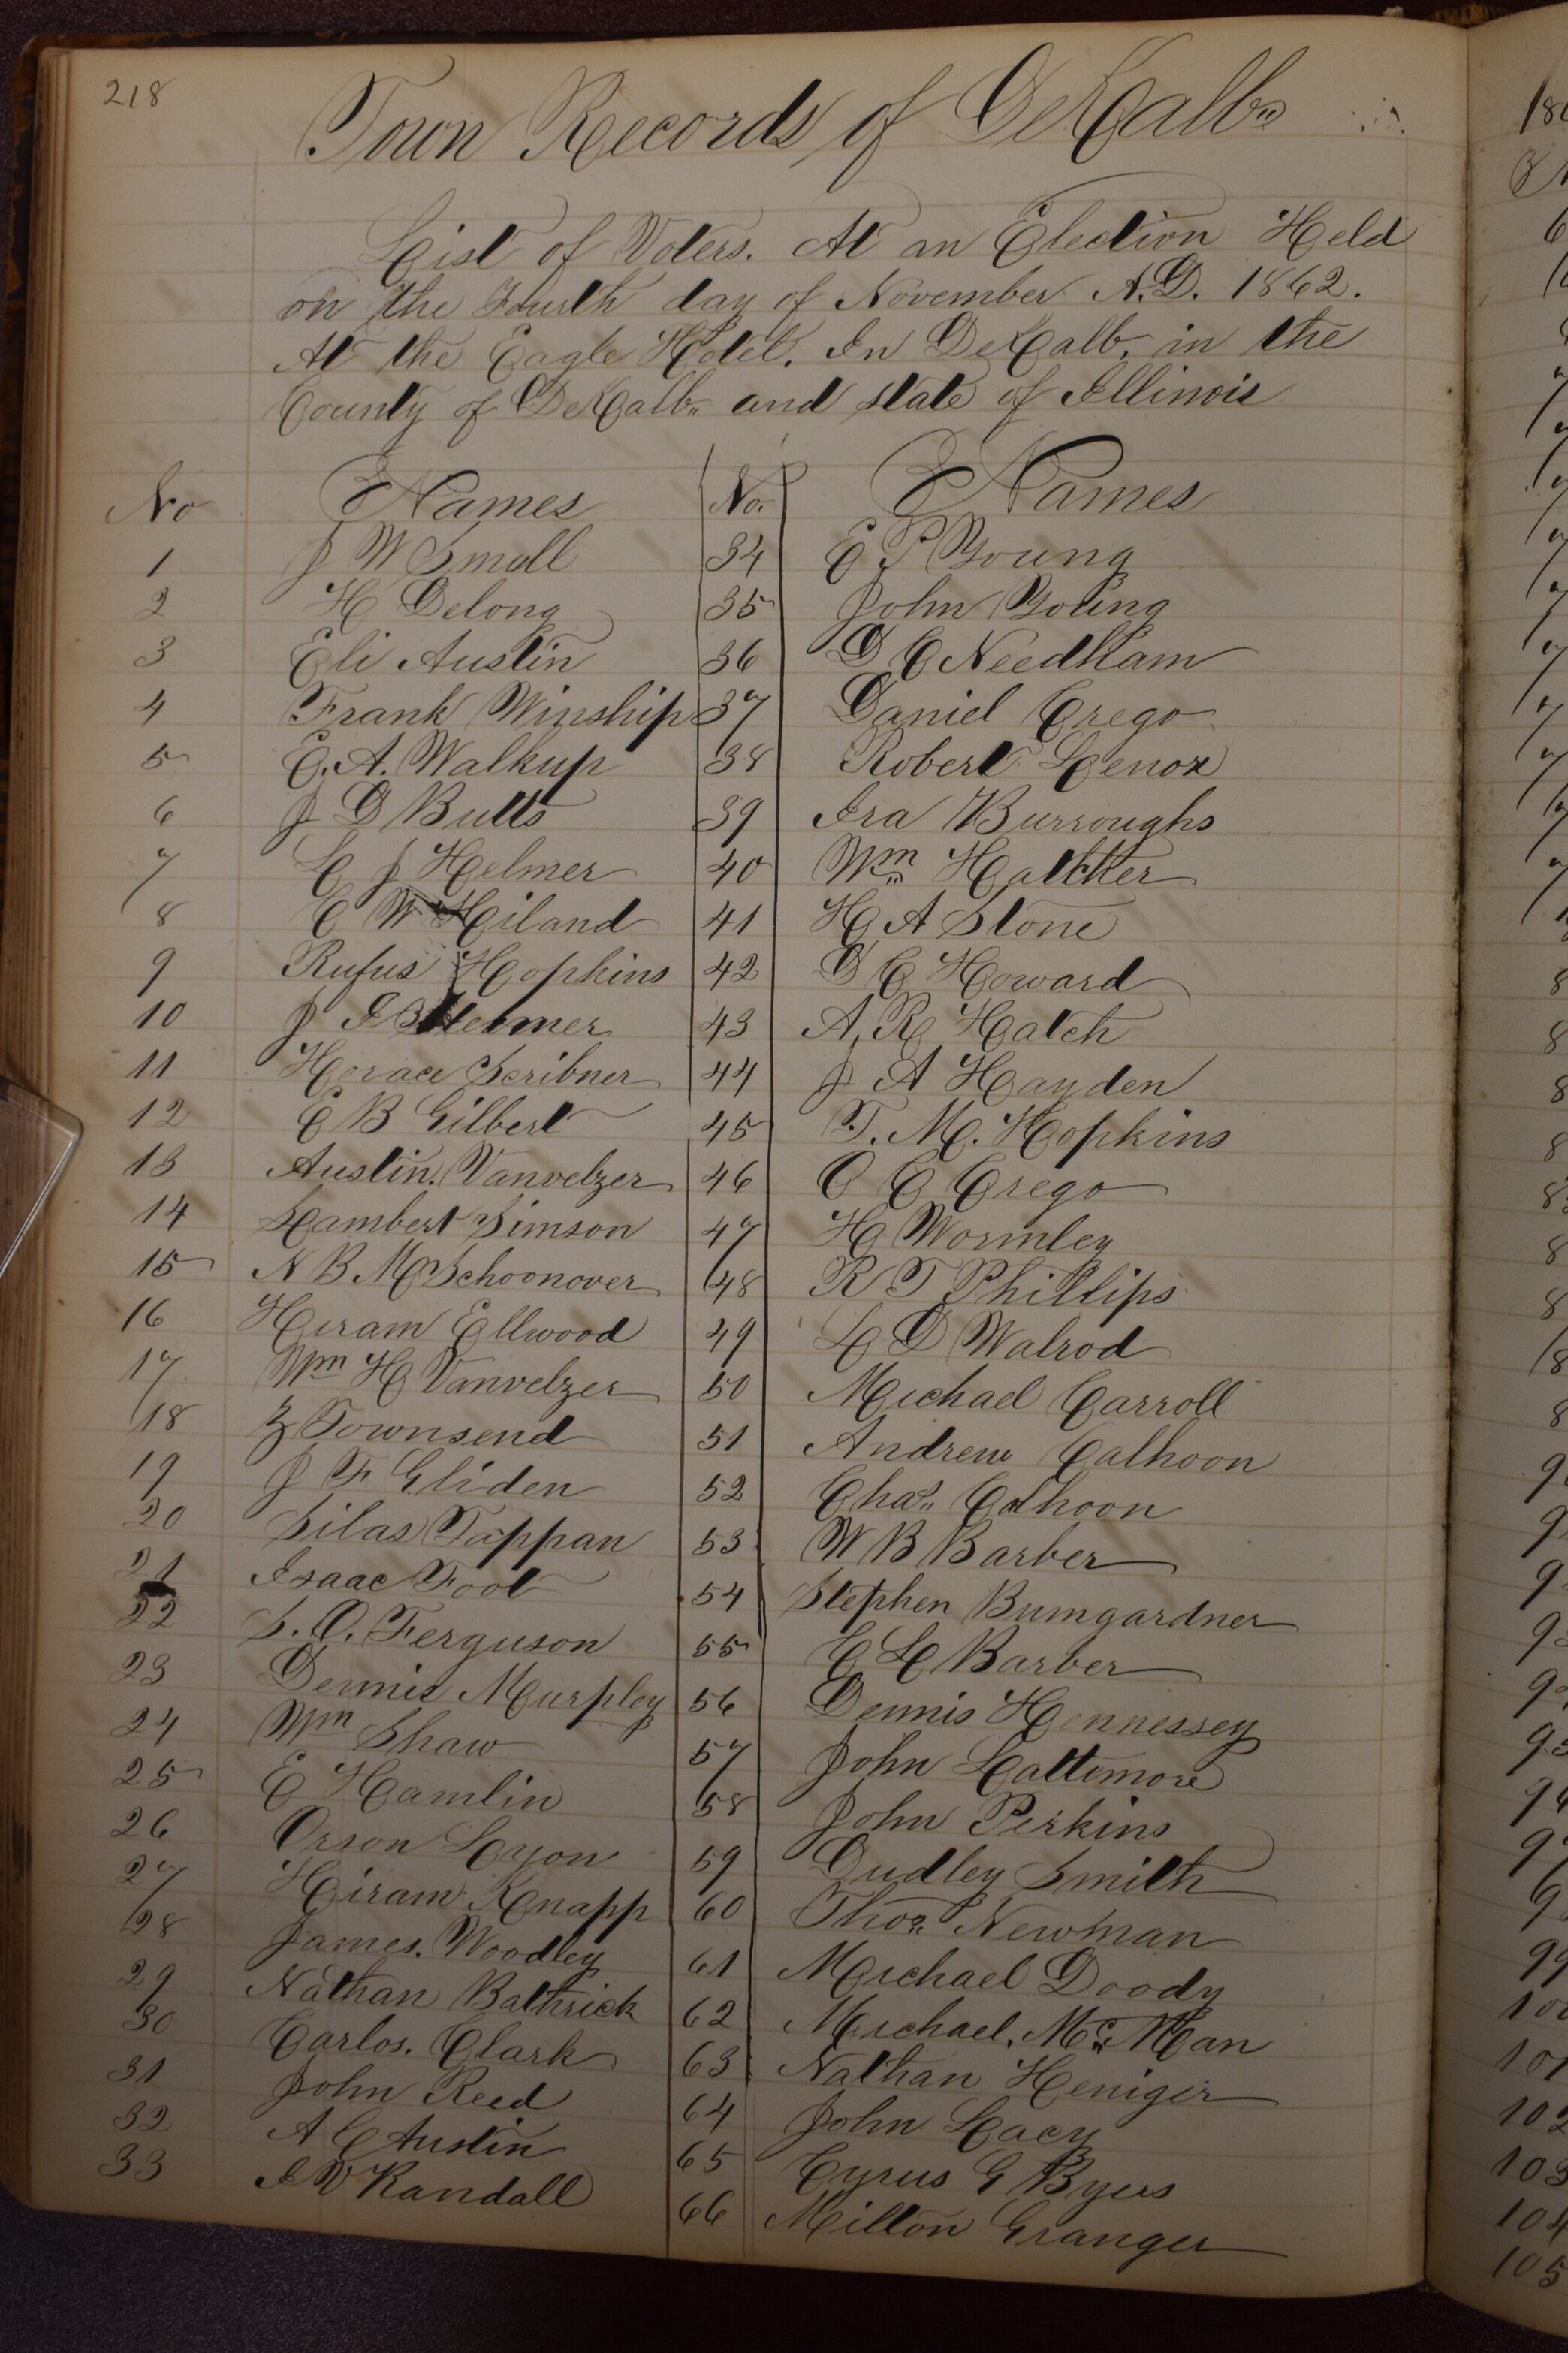 218
Town Records of DeKalb
List of Voters. At an Election Held
on the Fourth day of November A.D. 1862.
At the Eagle Hotel. In DeKalb, in the
County of DeKalb and state of Illinois
No Names No. Names
1 J W Small 34 E P Young
2 H Delong 35 John Young
3 Eli Austin 36 D C Needham
4 Frank Winship 37 Daniel Crego
5 E. A. Walkup 38 Robert Lenox
6 J D Butts 39 Ira Burroughs
7 C J Helmer 40 Wm Hatcher
8 C W Hiland 41 H A Stone
9 Rufus Hopkins 42 D C Howard
10 J 43 A, R Hatch
11 Horace Scribner 44 J A Hayden
12 E B Gilbert 45 T. M. Hopkins
13 Austin. Vanvelzer 46 O C Crego
14 Lambert Simson 47 H Wormley
15 N B Schoonover 48 R T Phillips
16 Hiram Ellwood 49 L D Walrod
17 Wm H Vanvelzer 50 Michael Carroll
18 Z Townsend 51 Andrew Calhoon
19 J F Gliden 52 Chas Calhoon
20 Silas Tappan 53 W B Barber
21 Isaac Foot 54 Stephen Bumgardner
22 S. O. Ferguson 55 C L Barber
23 Dennis Murpley 56 Dennis Hennessey
24 Wm Shaw 57 John Lattimore
25 E Hamlin 58 John Perkins
26 Orson Lyon 59 Dudley Smith
27 Hiram Knapp 60 Thos Newman
28 James. Woodley 61 Michael Doody
29 Nathan Bathrick 62 Michael. Mc Man
30 Carlos. Clark 63 Nathan Heniger
31 John Reed 64 John Lacy
32 A C Austin 65 Cyrus G Byers
33 I V Randall 66 Milton Granger